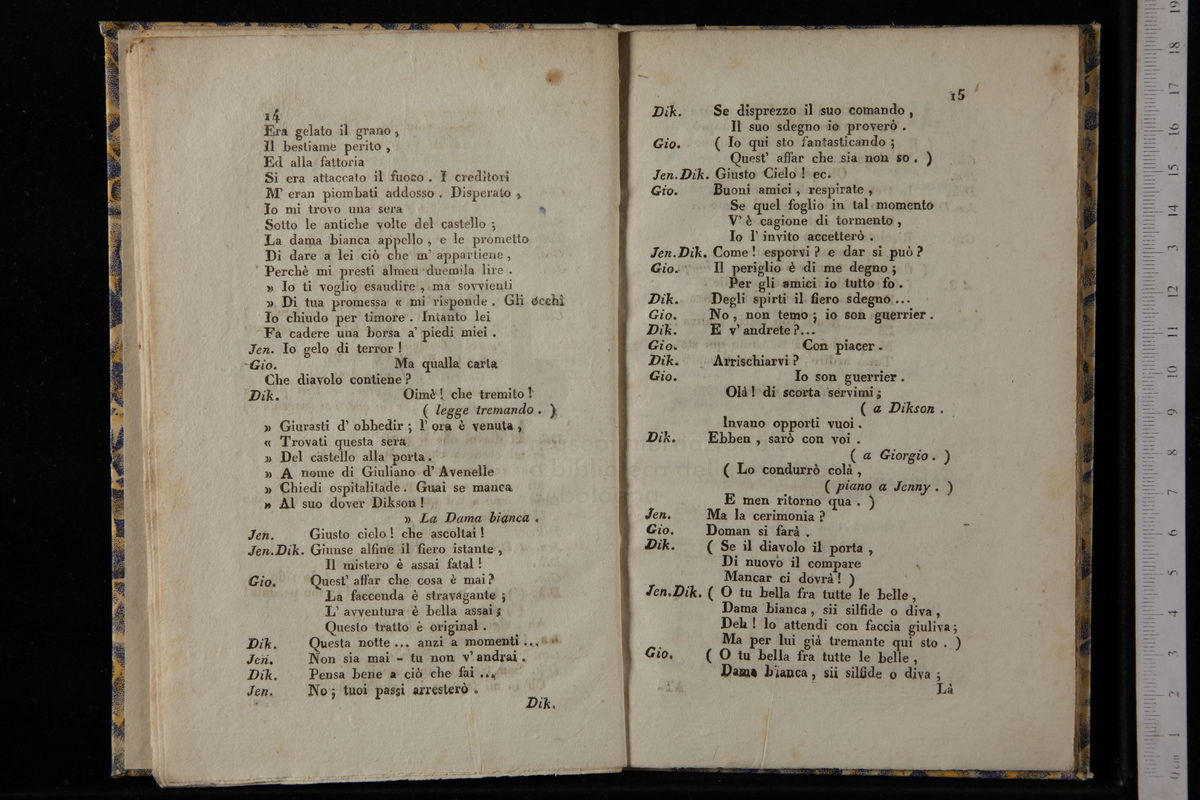 14
Era gelato il grano ,
Il bestiame perito ,
Ed alla fattoria
Si era attaccato il fuoco . I creditori
M' eran piombati addosso . Disperato ,
Io mi trovo una sera
Sotto le antiche volte del castello ;
La dama bianca appello , e le prometto
Di dare a lei ciò che m' appartiene ,
Perchè mi presti almen duemila lire .
» Io ti voglio esaudire , ma sovvienti
» Di tua promessa « mi risponde . Gli occhi
Io chiudo per timore . Intanto lei
Fa cadere una borsa a' piedi miei .
Jen. Io gelo di terror !
Gio. Ma qualla carta
Che diavolo contiene ?
Dik. Oimè ! che tremito !
( legge tremando . )
» Giurasti d' obbedir ; l' ora è venuta ,
« Trovati questa sera
» Del castello alla porta .
» A nome di Giuliano d' Avenelle
» Chiedi ospitalitade . Guai se manca
» Al suo dover Dikson !
» La Dama bianca .
Jen. Giusto cielo ! che ascoltai !
Jen.Dik. Giunse alfine il fiero istante ,
Il mistero è assai fatal !
Gio. Quest' affar che cosa è mai ?
La faccenda è stravagante ;
L' avventura è bella assai ;
Questo tratto è original .
Dik. Questa notte ... anzi a momenti ...
Jen. Non sia mai - tu non v' andrai .
Dik. Pensa bene a ciò che fai ...
Jen. No ; tuoi passi arresterò .
Dik.
15
Dik. Se disprezzo il suo comando ,
Il suo sdegno io proverò .
Gio. ( Io qui sto fantasticando ;
Quest' affar che sia non so . )
Jen.Dik. Giusto Cielo ! ec.
Gio. Buoni amici , respirate ,
Se quel foglio in tal momento
V' è cagione di tormento ,
Io l' invito accetterò .
Jen.Dik. Come ! esporvi ? e dar si può ?
Gio. Il periglio è di me degno ;
Per gli amici io tutto fo .
Dik. Degli spirti il fiero sdegno ...
Gio. No , non temo ; io son guerrier .
Dik. E v' andrete ?...
Gio. Con piacer .
Dik. Arrischiarvi ?
Gio. Io son guerrier .
Olà ! di scorta servimi ;
( a Dikson .
Invano opporti vuoi .
Dik. Ebben , sarò con voi .
( a Giorgio . )
( Lo condurrò colà ,
( piano a Jenny . )
E men ritorno qua . )
Jen. Ma la cerimonia ?
Gio. Doman si farà .
Dik. ( Se il diavolo il porta ,
Di nuovo il compare
Mancar ci dovrà ! )
Jen.Dik. ( O tu bella fra tutte le belle ,
Dama bianca , sii silfide o diva ,
Deh ! lo attendi con faccia giuliva ;
Ma per lui già tremante qui sto . )
Gio. ( O tu bella fra tutte le belle ,
Dama bianca , sii silfide o diva ;
Là